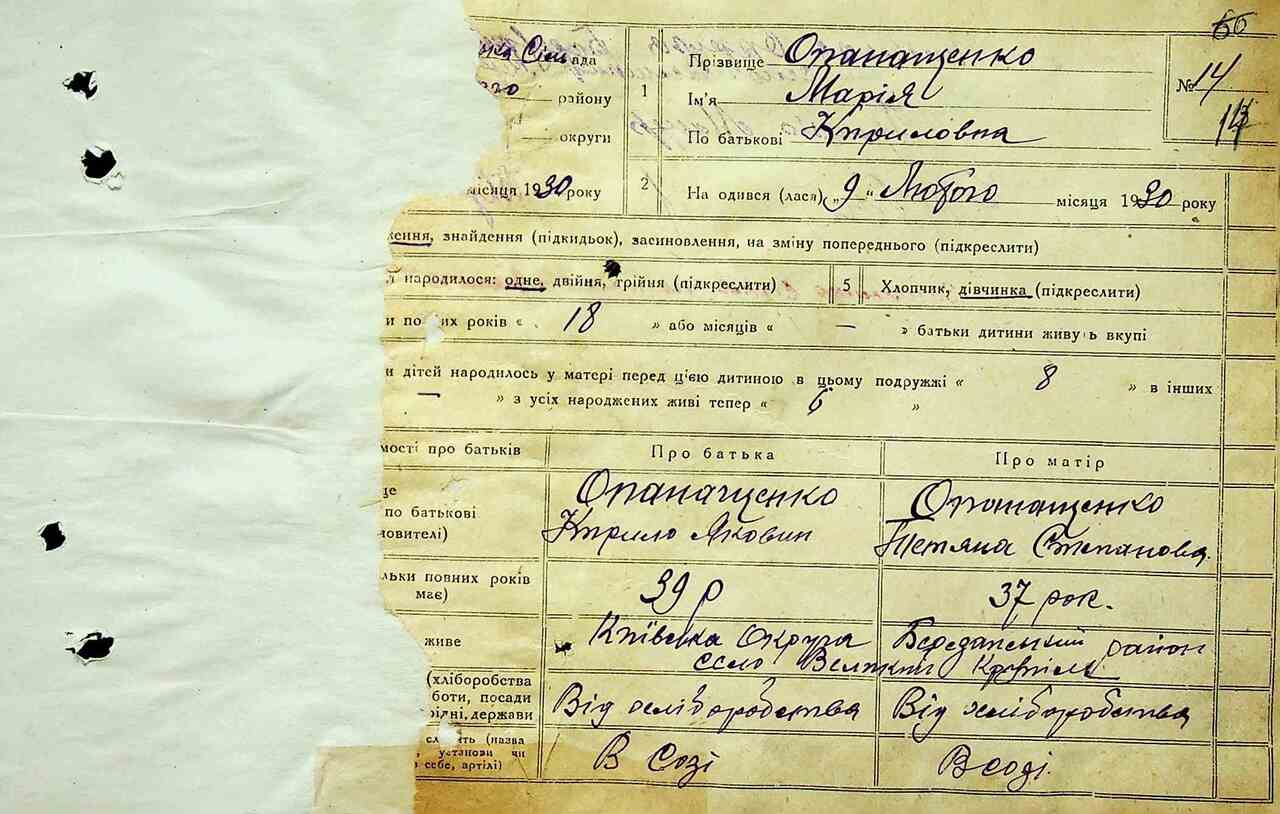 66
нка Сільрада Прізвище Опанащенко
№ 14
району 1 Ім'я Марія
14
округи По батькові Кириловна
місяця 1930 року 2 На одився (лася) „ 9 “ Лютого місяця 1930 року
ження, знайдення (підкидьок), засиновлення, на зміну попереднього (підкреслити)
народилося: одне, двійня, трійня (підкреслити) 5 Хлопчик, дівчинка (підкреслити)
и по их років « 18 » або місяців « — » батьки дитини живуть вкупі
и дітей народилось у матері перед цією дитиною в цьому подружжі « 8 » в інших
— » з усіх народжених живі тепер « 6 »
мості про батьків Про батька Про матір
ще Опанащенко Опанащенко
по батькові Кирило Якович Тетяна Степанова
новителі)
льки повних років 39 р 37 рок.
має)
живе Київська Округа район
село Великий
(хліборобства
боти, посади Від хліборобства Від хліборобства
рідні, держави
служить (назва
установи чи В Созі В созі.
в себе, артілі)